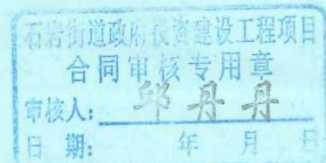 石岩街道政府投资建设工程项目
合同审核专用章
审核人:邱丹丹
日期: 年 月 日